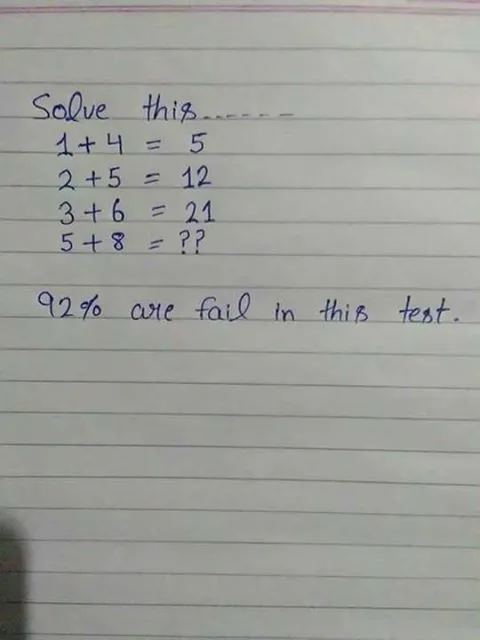 Solve this......
1 + 4 = 5
2 + 5 = 12
3 + 6 = 21
5 + 8 = ??
92% are fail in this test.